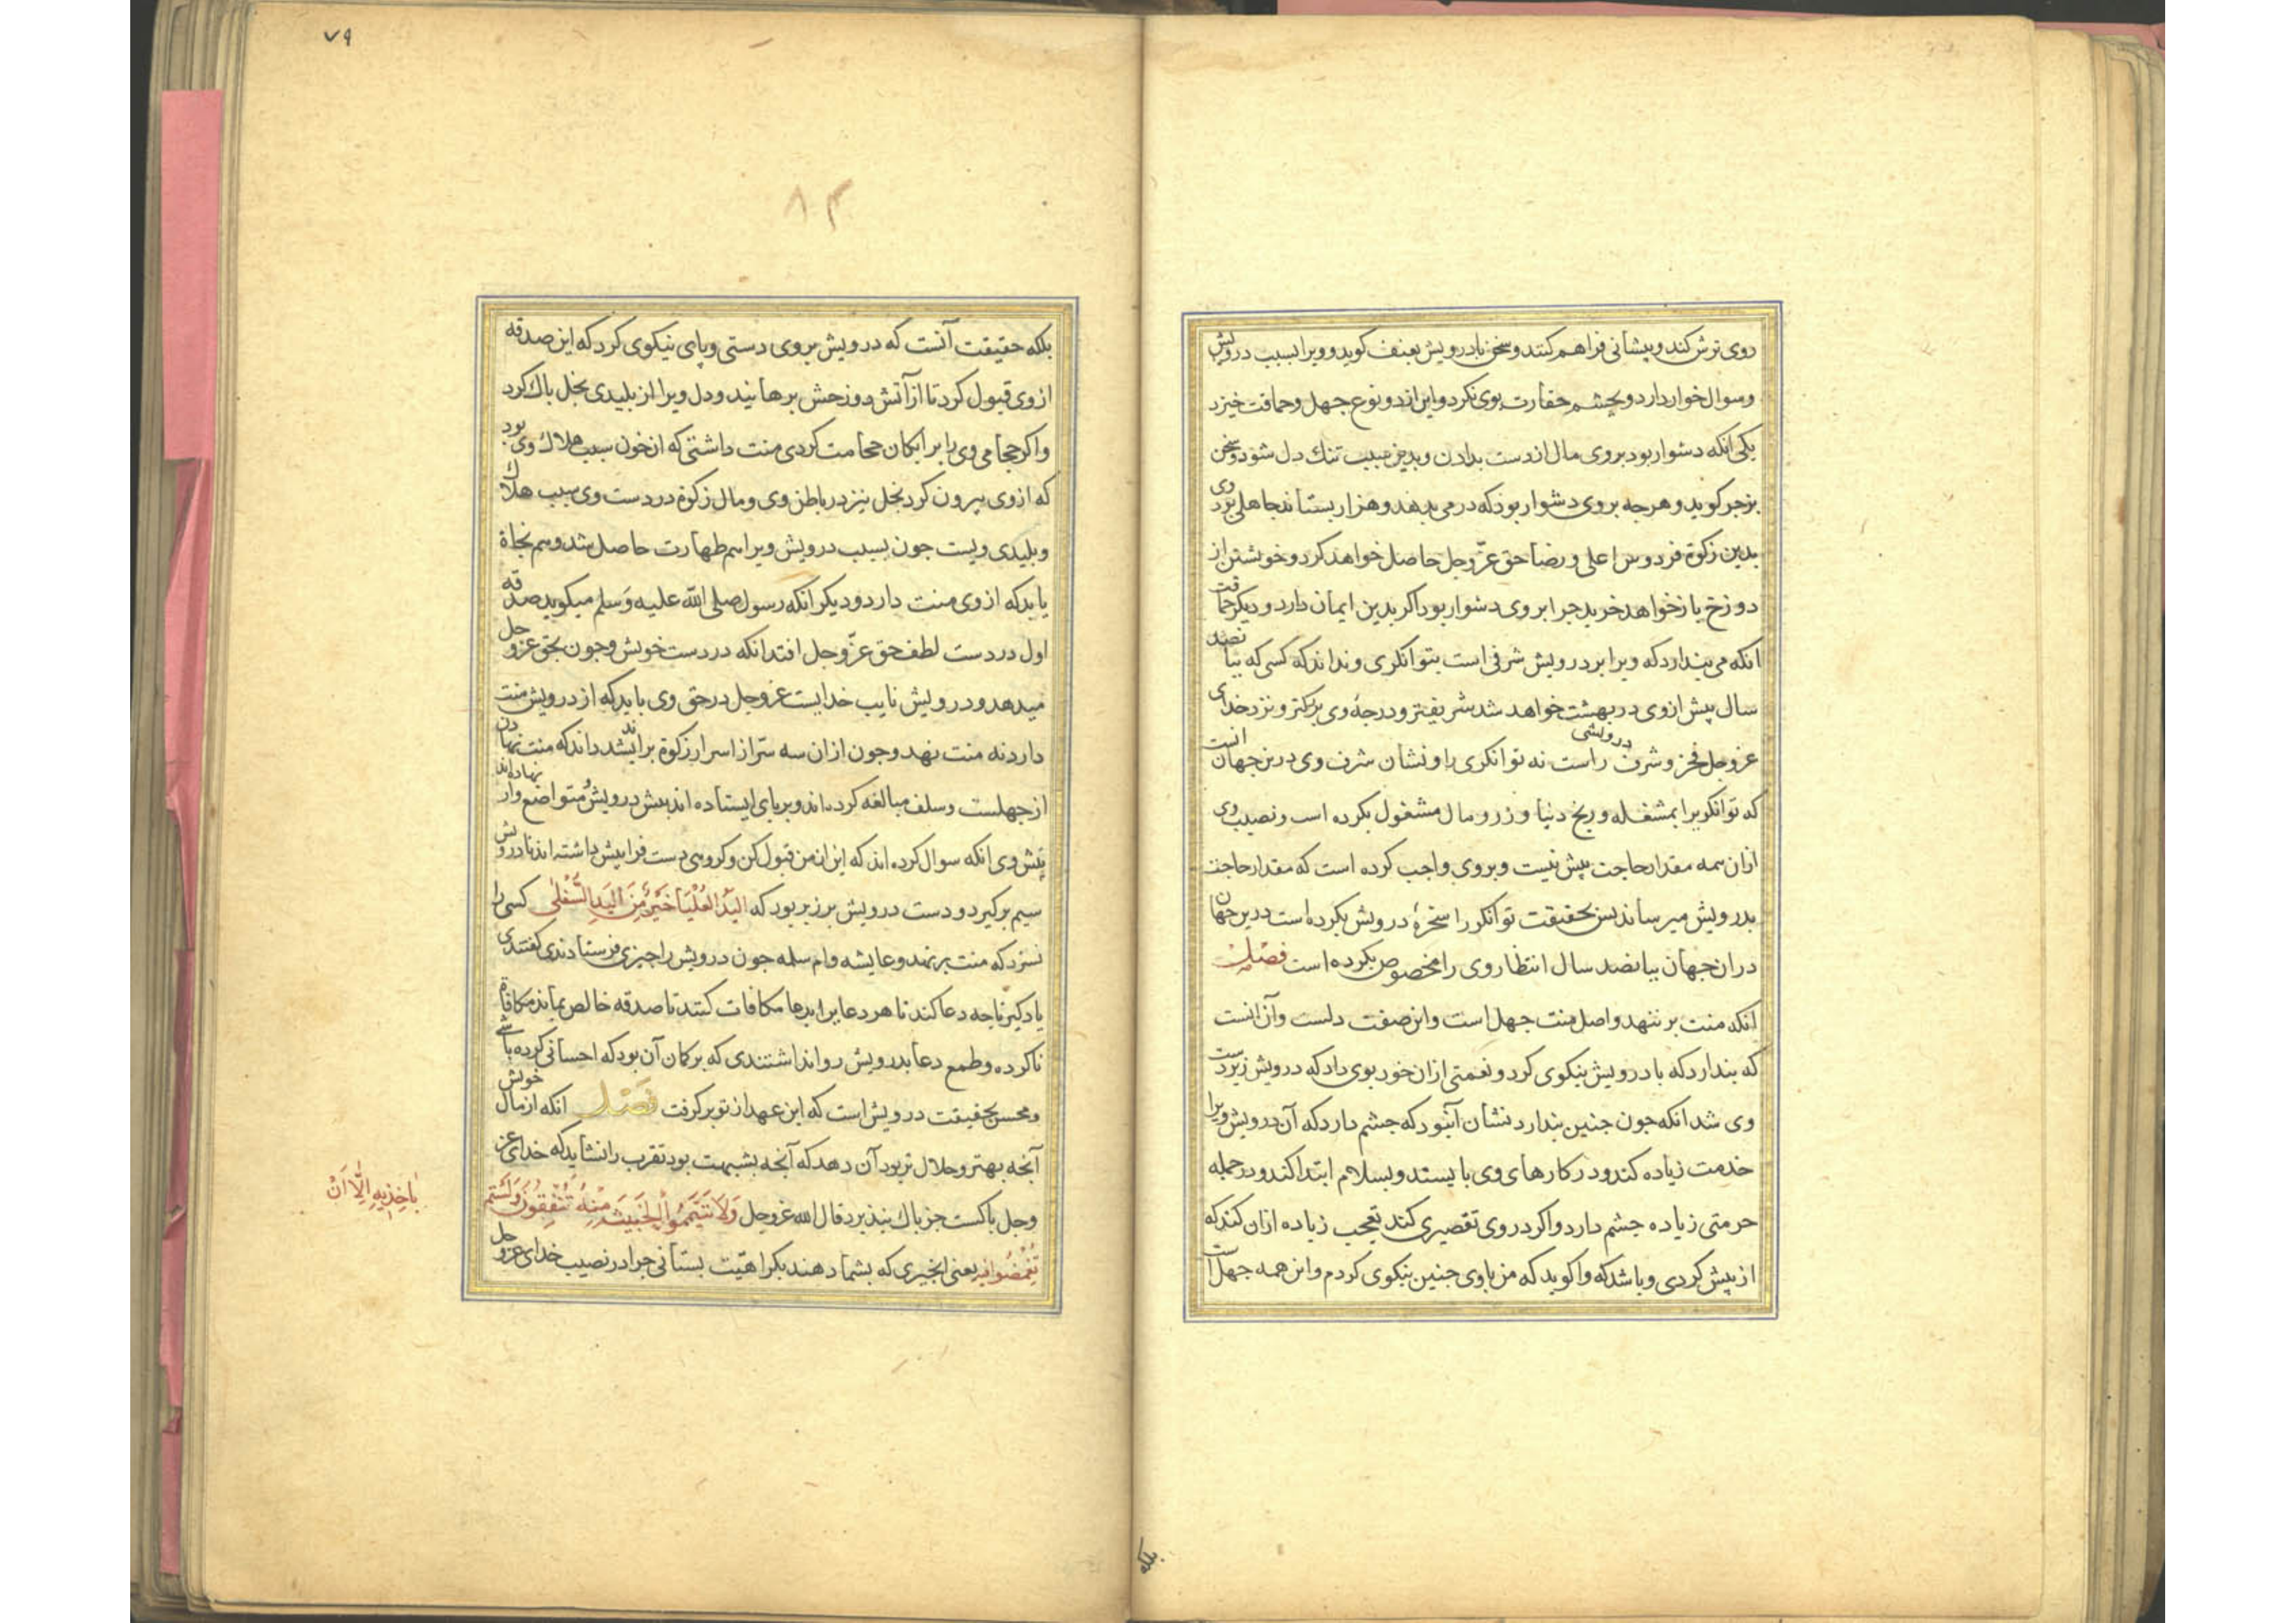 روی ترش کند و پیشانی فراهم کند و سخن با درویش بعنف کوید و ویرا بسبب درویشی
وسوال خوار دارد و بچشم حقارت بوی نکرد و این از دو نوع جهل و حماقت خیزد
یکی انکه دشوار بود بروی مال از دست بدادن و بدین سبب تنک دل شود و سخن
بزجر کوید و هرجه بروی دشوار بود که درمی بدهد و هزار بستاند جاهلی بود وی
بدین زکوة فردوس اعلی و رضا حق عزّ وجل حاصل خواهد کرد و خویشتن از
دوزخ باز خواهد خرید جرا بروی دشوار بود اکر بدین ایمان دارد و دیکر حماقت
انکه می بندارد که ویرا بر درویش شرفی است بتوانکری و نداند که کسی که ببانصد
سال پیش از وی در بهشت خواهد شد شریفتر و درجهٔ وی بزرکتر و نزد خدای
عز وجل فخر و شرف درویشی راست نه توانکری را و نشان شرف وی درین جهان انست
که توانکر یرا بمشغله و رنج دنیا و زر و مال مشغول بکرده است و نصیب وی
ازان همه مقدار حاجت پیش نیست و بروی واجب کرده است که مقدار حاجت
بدرویش میرساند بس بحقیقت توانکر را سخرهٔ درویش بکرده است درین جهان
دران جهان ببانصد سال انتظار وی را مخصوص بکرده است فصل
انکه منت بر ننهد و اصل منت جهل است و این صفت دلست و آن انست
که بندارد که با درویش نیکوی کرد و نعمتی ازان خود بوی داد که درویش زیردست
وی شد انکه جون جنین بندارد نشان آن بود که جشم دارد که آن درویش ویرا
خدمت زیاده کند و در کارهای وی بایستد و بسلام ابتدا کند و در جمله
حرمتی زیاده جشم دارد و اکر در وی تقصیری کند تعجب زیاده ازان کند که
از پیش کردی و باشد که واکوید که من باوی جنین نیکوی کردم و این همه جهل است
بلکه
۷۹
۸۳
بلکه حقیقت آنست که درویش بروی دستی وپای نیکوی کرد که این صدقه
ازوی قبول کرد تا از آتش دوزخش برهانید و دل ویرا از بلیدی بخل باک کرد
و اکر حجامی وی را برایکان حجامت کردی منت داشتی که ازخون سبب هلاک وی بود
که ازوی بیرون کرد بخل نیز در باطن وی و مال زکوة در دست وی سبب هلاک
و بلیدی ویست جون بسبب درویش ویرا هم طهارت حاصل شد و هم نجاة
باید که از وی منت دارد و دیکر انکه رسول صلی الله علیه وَسلم میکوید صدقه
اول در دست لطف حق عزّ وجل افتد انکه در دست خویش وجون بحق عز وجل
میدهد و درویش نایب خدایست عز وجل در حق وی باید که از درویش منت
دارد نه منت نهد وجون ازان سه سّر از اسرار زکوة براندیشد داند که منت نهادن
از جهلست وسلف مبالغه کرده اند و بر بای ایستاده اند بیش درویش و متواضع وار نهاده اند
پیش وی انکه سوال کرده اند که این از من قبول کن و کروهی دست فرا بیش داشته اند تا درویش
سیم برکیرد و دست درویش برزبر بود که الیَدُ العُلیَا خَیرٌ مِنَ الیَدِ السُّفلیٰ کسی را
نسزد که منت بر نهد و عایشه وام سلمه جون درویش را جیزی فرستادندی کفتندی
یاد کیر تا جه دعا کند تا هر دعا یرا بدعا مکافات کنند تا صدقه خالص بماند مکافاة
ناکرده وطمع دعا بدرویش روا نداشتندی که بر کمان آن بود که احسانی کرده باشی
ومحسن بحقیقت درویش است که این عهد از تو برکرفت فصل انکه از مال خویش
آنجه بهتر و حلال تر بود آن دهد که آنجه بشبهت بود تقرب را نشاید که خدای عز
وجل باکست جز باک نبذیرد قال الله عز وجل وَلَا تَیَمَّمُوا الخَبِیثَ مِنهُ تُنفِقُونَ وَلَستُم
بآخِذِیهِ اِلَّا اَن
تُغمِضُوا فیه یعنی انجیزی که بشما دهند بکراهیّت بستانی جرا در نصیب خدای عز وجل